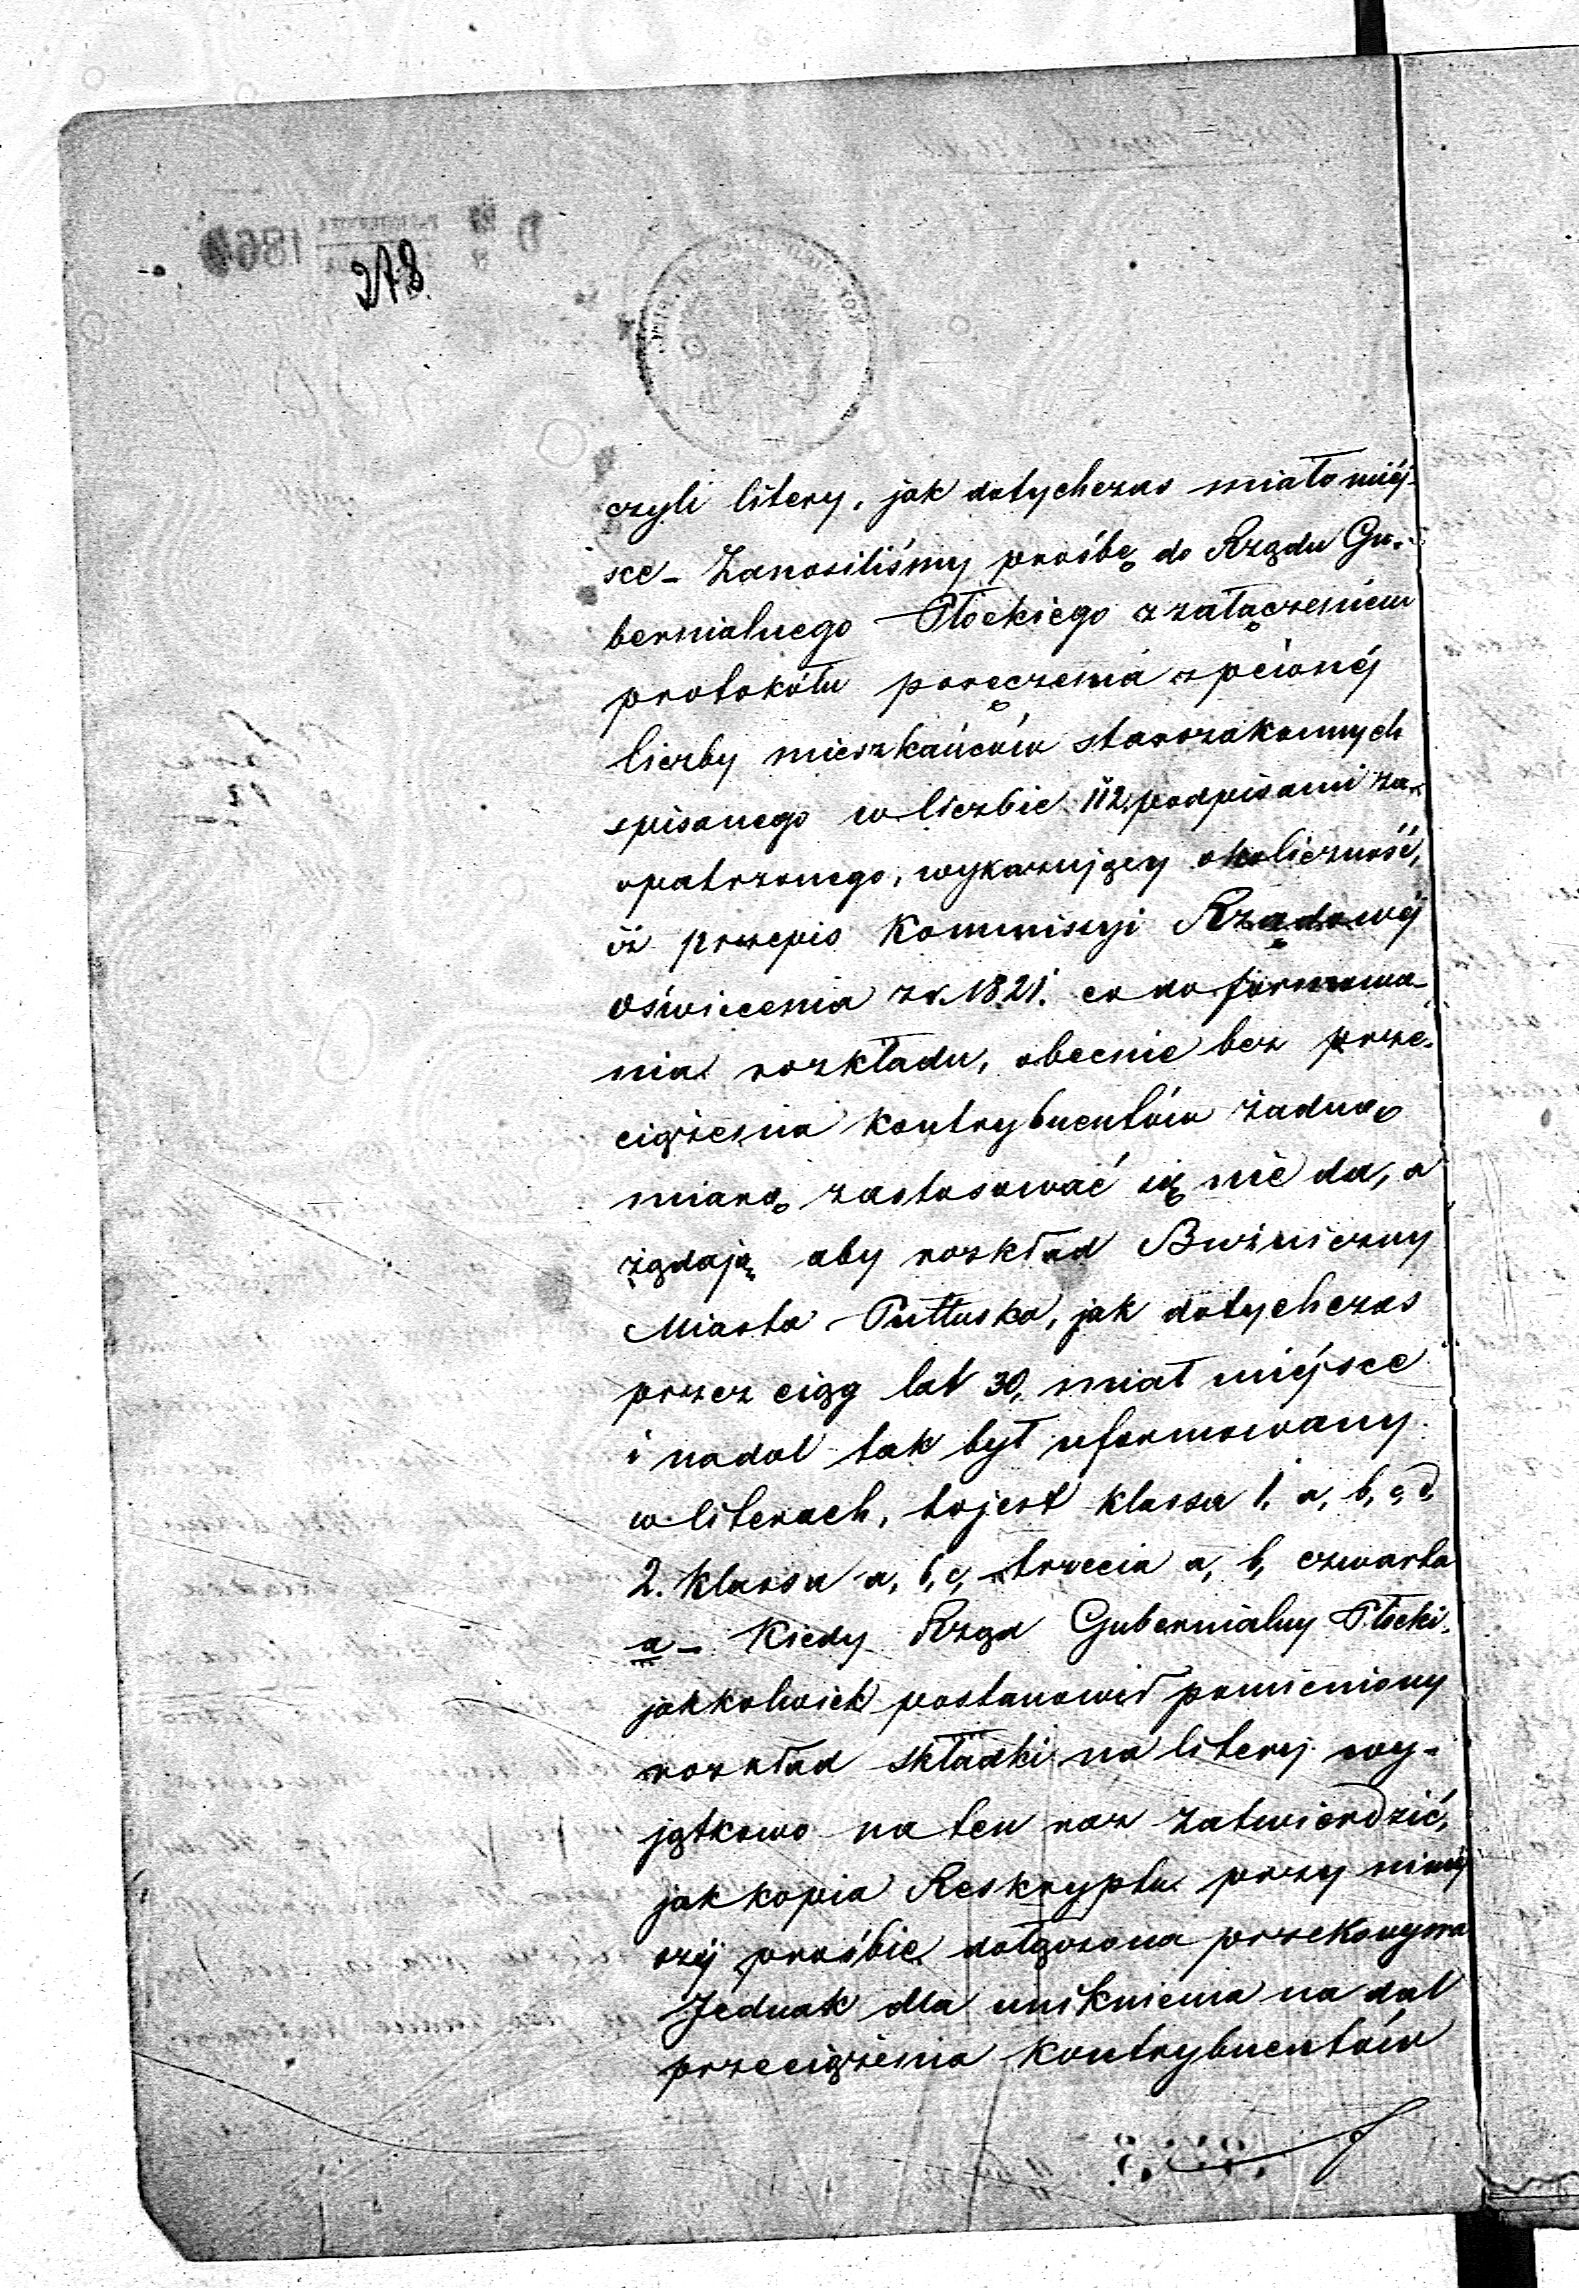 278.
czyli litery, jak dotychczas miało miéj-
sce – Zanosiliśmy prośbę do Rządu Gu-
bernialnego Płockiego z załączeniem
protokółu poręczenia z pcionéj
liczby mieszkańców starozakonnych
spisanego w liczbie 112 podpisami za-
opatrzonego, wykazujący okoliczność,
iż przepis Kommissyi Rządowéj
Oświecenia z r. 1821. co do formowa-
nia rozkładu, obecnie bez prze-
ciążenia kontrybuentów żadną
miarą zastosować się nie da, a
żądają aby rozkład Bużniczny
Miasta Pułtuska, jak dotychczas
przez ciąg lat 30, miał miéjsce
i nadal tak był uformowany
w literach, to jest klassa 1, a, b, c, d,
2. klassa a, b, c, trzecia a, b, czwarta
a – Kiedy Rząd Gubernialny Płocki,
jakkolwiek postanowił pomieniony
rozkład składki na litery wy-
jątkowo na ten raz zatwierdzić,
jak kopia Reskryptu przy niniej
széj prośbie dołączona przekonywa
Jednak dla uniknienia na dal
przeciążenia kontrybuentów